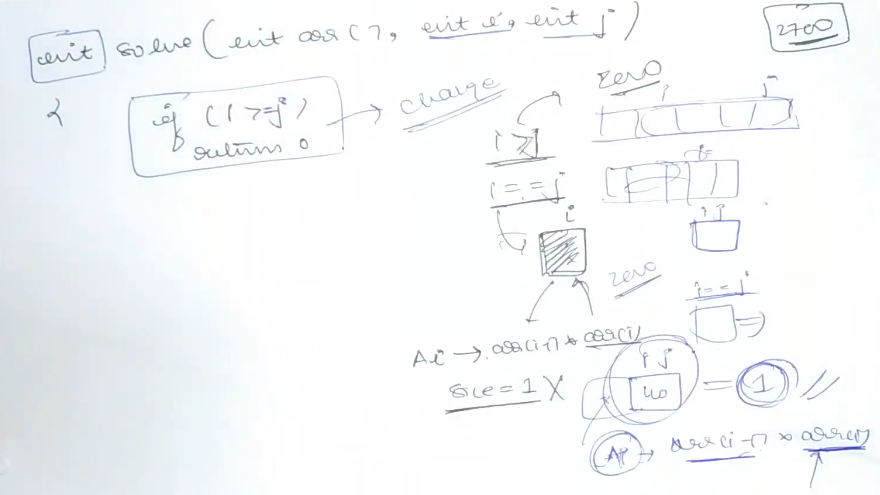 int solve(int arr[], int i, int j)
2700
{
if (i >=j)
return 0
change
zero
i j
i > j
i==j
i
i j
zero
i==j
Ai → arr[i-1] * arr[i]
i j
size = 1 X
40 = 1
Ai → arr[i-1] * arr[i]